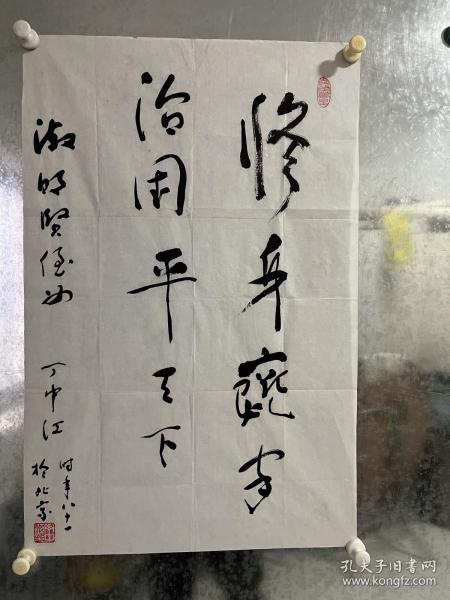 修身齊家
治国平天下
淑明贤侄女 丁中江
时年八十一
於北京
孔夫子旧书网
www.kongfz.com